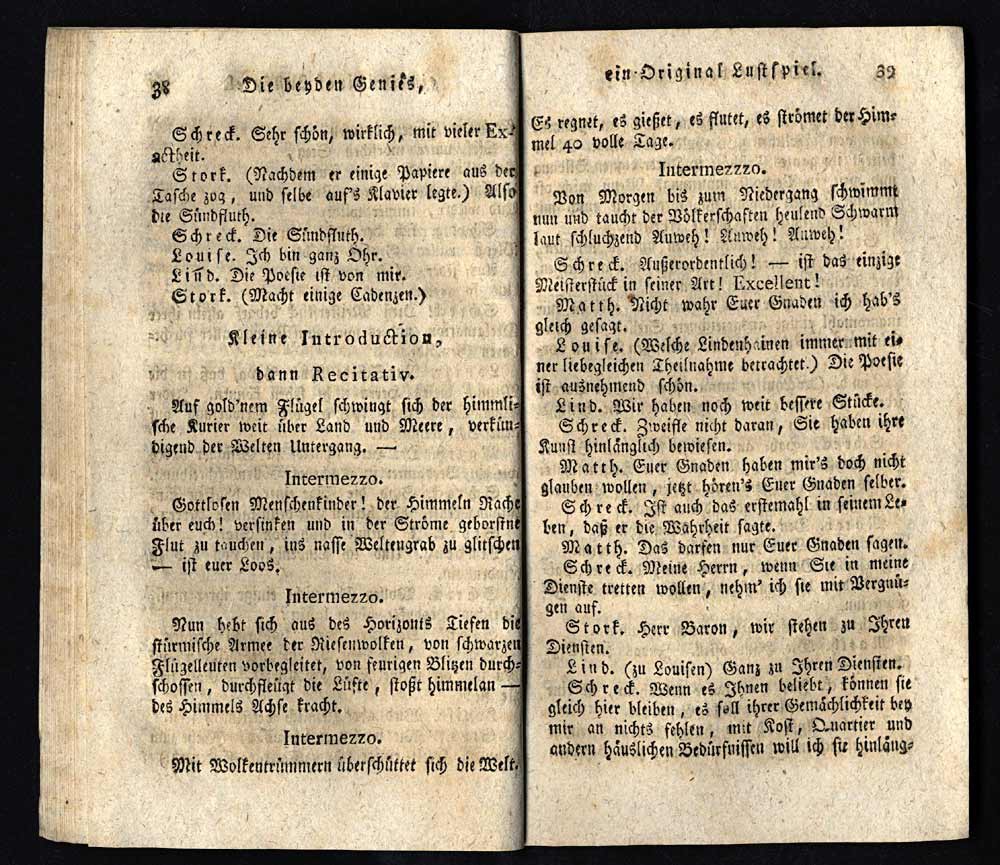 38 Die beyden Genies,
Schreck. Sehr schön, wirklich, mit vieler Ex-
actheit.
Stork. (Nachdem er einige Papiere aus der
Tasche zog, und selbe auf's Klavier legte.) Also
die Sündfluth.
Schreck. Die Sündfluth.
Louise. Ich bin ganz Ohr.
Lind. Die Poesie ist von mir.
Stork. (Macht einige Cadenzen.)
Kleine Introduction,
dann Recitativ.
Auf gold'nem Flügel schwingt sich der himmli-
sche Kurier weit über Land und Meere, verkün-
digend der Welten Untergang. —
Intermezzo.
Gottlosen Menschenkinder! der Himmeln Rache
über euch! versinken und in der Ströme geborstne
Flut zu tauchen, ins nasse Weltengrab zu glitschen
— ist euer Loos.
Intermezzo.
Nun hebt sich aus des Horizonts Tiefen die
stürmische Armee der Riesenwolken, von schwarzen
Flügelleuten vorbegleitet, von feurigen Blitzen durch-
schossen, durchfleugt die Lüfte, stoßt himmelan —
des Himmels Achse kracht.
Intermezzo.
Mit Wolkentrümmern überschüttet sich die Welt.
ein Original Lustspiel. 39
Es regnet, es gießet, es flutet, es strömet der Him-
mel 40 volle Tage.
Intermezzzo.
Von Morgen bis zum Niedergang schwimmt
nun und taucht der Völkerschaften heulend Schwarm
laut schluchzend Auweh! Auweh! Auweh!
Schreck. Außerordentlich! — ist das einzige
Meisterstück in seiner Art! Excellent!
Matth. Nicht wahr Euer Gnaden ich hab's
gleich gesagt.
Louise. (Welche Lindenhainen immer mit ei-
ner liebegleichen Theilnahme betrachtet.) Die Poesie
ist ausnehmend schön.
Lind. Wir haben noch weit bessere Stücke.
Schreck. Zweifle nicht daran, Sie haben ihre
Kunst hinlänglich bewiesen.
Matth. Euer Gnaden haben mir's doch nicht
glauben wollen, jetzt hören's Euer Gnaden selber.
Schreck. Ist auch das erstemahl in seinem Le-
ben, daß er die Wahrheit sagte.
Matth. Das darfen nur Euer Gnaden sagen.
Schreck. Meine Herrn, wenn Sie in meine
Dienste tretten wollen, nehm' ich sie mit Vergnü-
gen auf.
Stork. Herr Baron, wir stehen zu Ihren
Diensten.
Lind. (zu Louisen) Ganz zu Ihren Diensten.
Schreck. Wenn es Ihnen beliebt, können sie
gleich hier bleiben, es soll ihrer Gemächlichkeit bey
mir an nichts fehlen, mit Kost, Quartier und
andern häuslichen Bedürfnissen will ich sie hinläng-